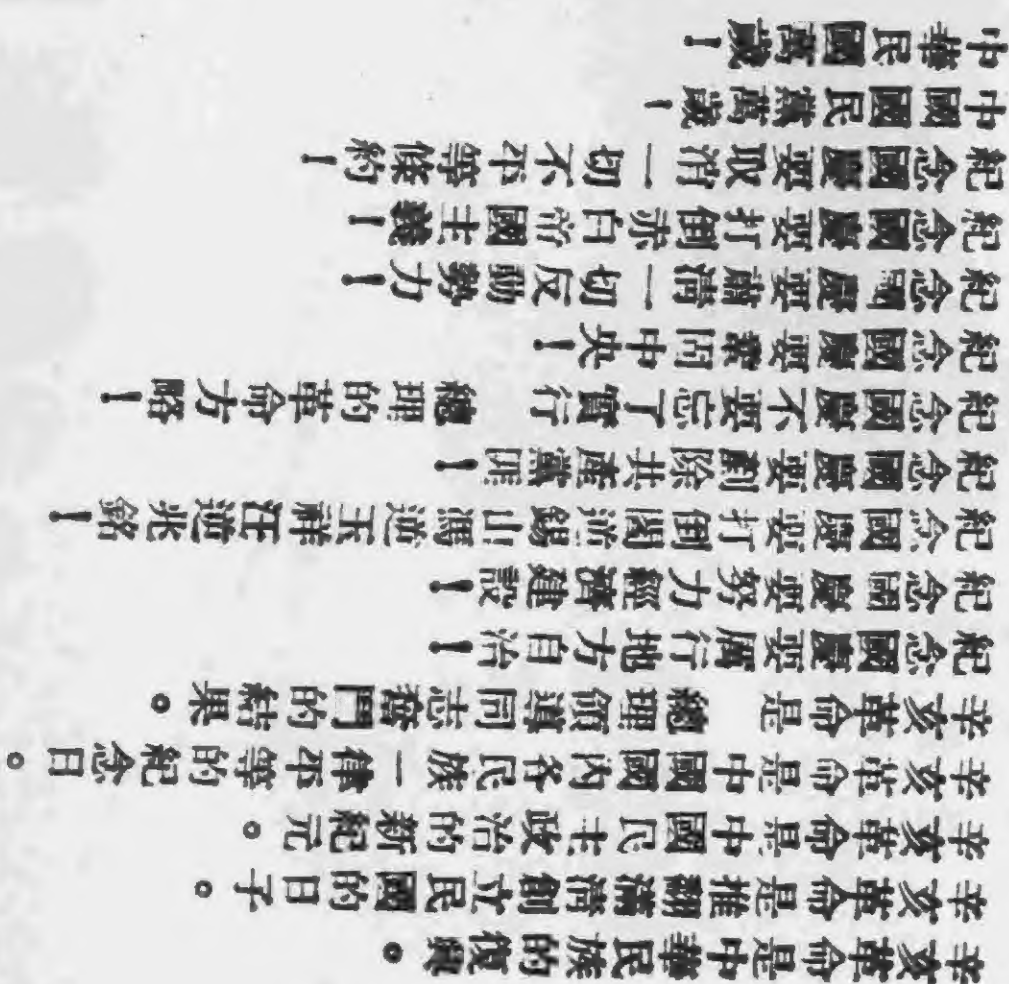 辛亥革命是中華民族的復興。
辛亥革命是推翻滿清創立民國的日子。
辛亥革命是中國民主政治的新紀元。
辛亥革命是中國國內各民族一律平等的紀念日。
辛亥革命是　總理領導同志奮鬥的結果。
紀念國慶要厲行地方自治！
紀念國慶要努力經濟建設！
紀念國慶要打倒閻逆錫山馮逆玉祥汪逆兆銘！
紀念國慶要剷除共產黨匪！
紀念國慶不要忘了實行　總理的革命方略！
紀念國慶要中央！
紀念國慶要肅清一切反動勢力！
紀念國慶要打倒赤白帝國主義！
紀念國慶要取消一切不平等條約！
中國國民黨萬歲！
中華民國萬歲！